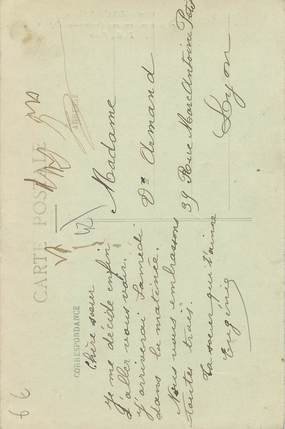 CARTE POSTALE
CORRESPONDANCE
Chère soeur
Je me décide enfin
d'aller vous voir.
J'arriverai Samedi
dans la matinée.
Nous vous embrassons
toutes trois.
Ta soeur qui t'aime
Eugénie
Madame
Armand
39 Rue Marc Antoine Petit
Lyon
66